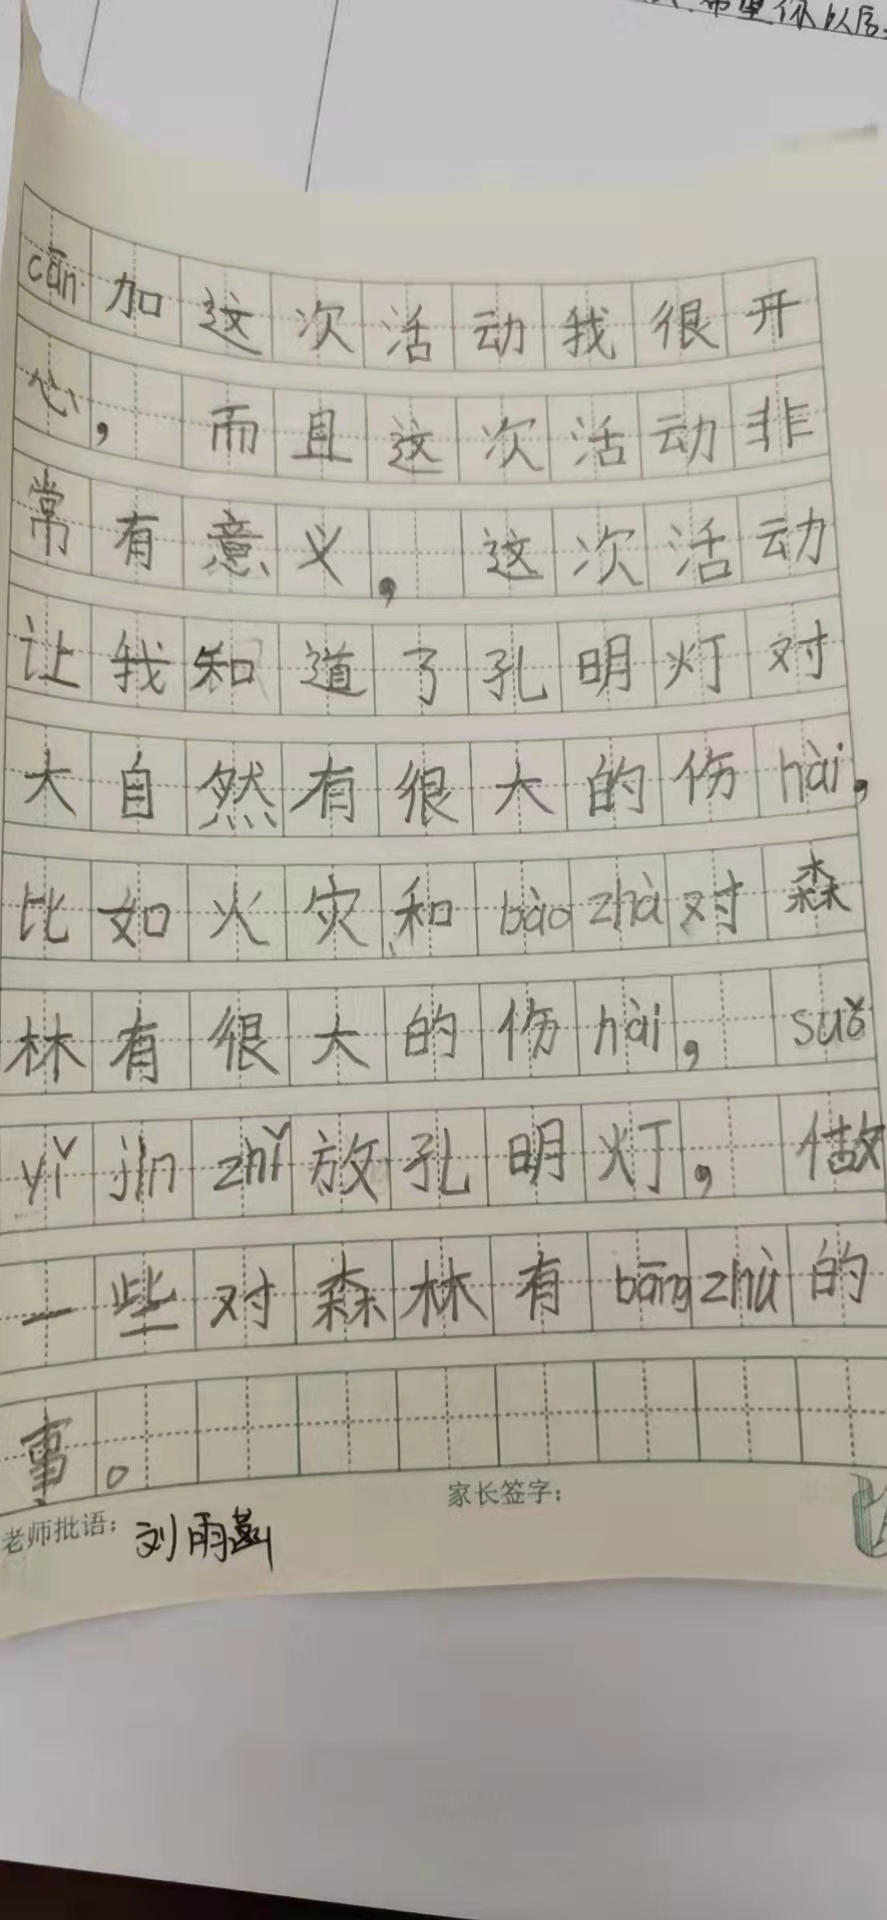 希望你以后
cān加这次活动我很开
心，而且这次活动非
常有意义，这次活动
让我知道了孔明灯对
大自然有很大的伤hài，
比如火灾和bào zhà对森
林有很大的伤hài，suǒ
yǐ jìn zhǐ放孔明灯，做
一些对森林有bāng zhù的
事。
家长签字：
老师批语：刘雨菡